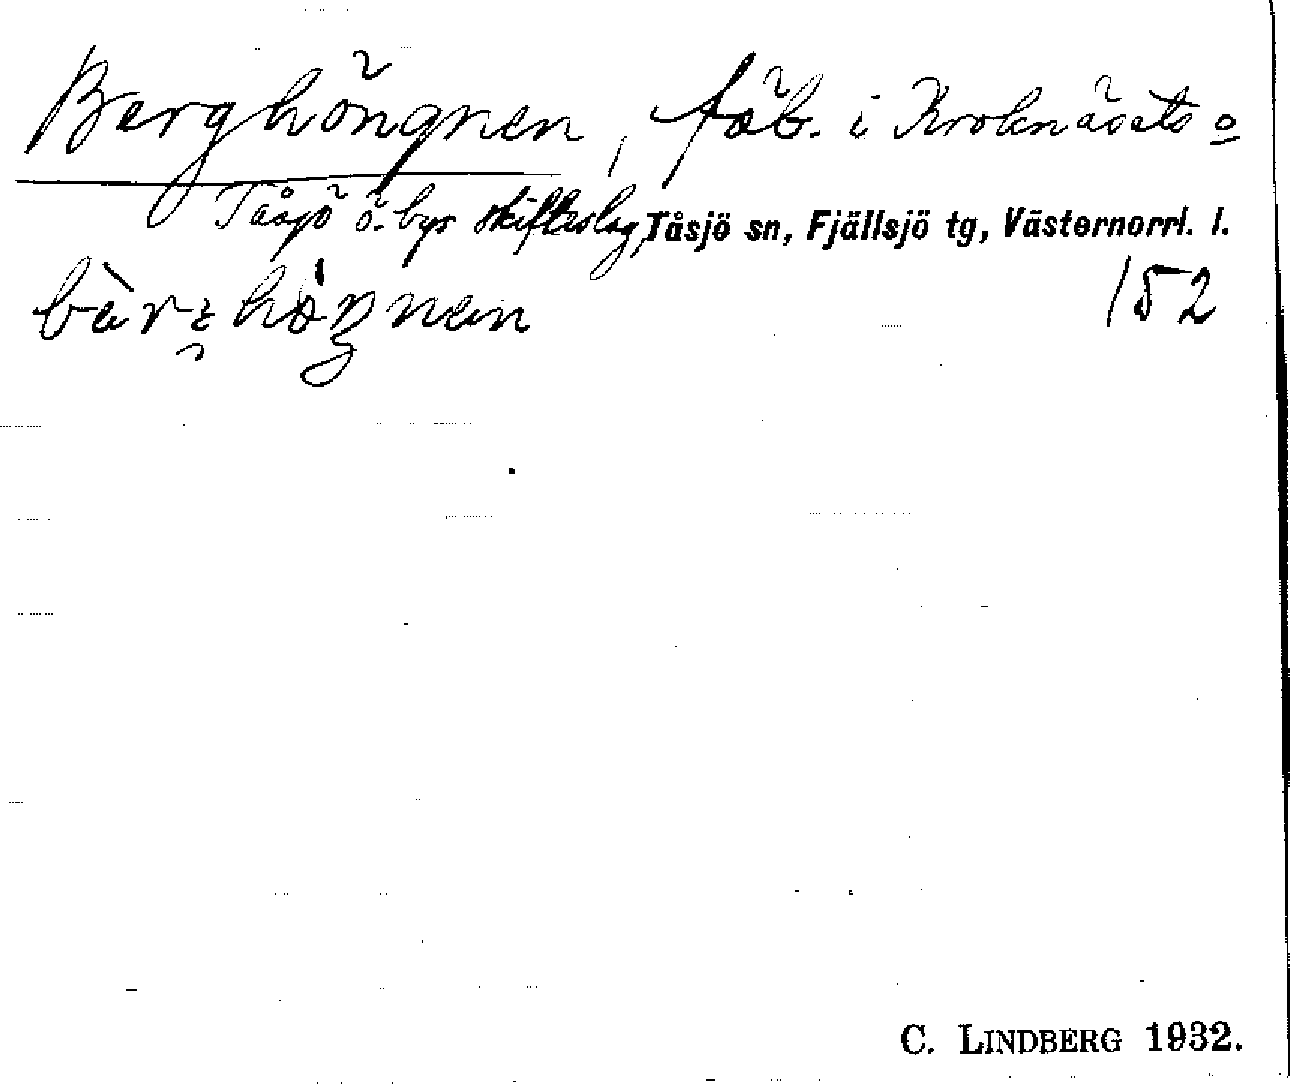 Berghöngnen, fäb. i Kroknäsets o
Tåsjö ö. bys skifteslag, Tåsjö sn, Fjällsjö tg, Västernorrl. l.
152
C. LINDBERG 1932.